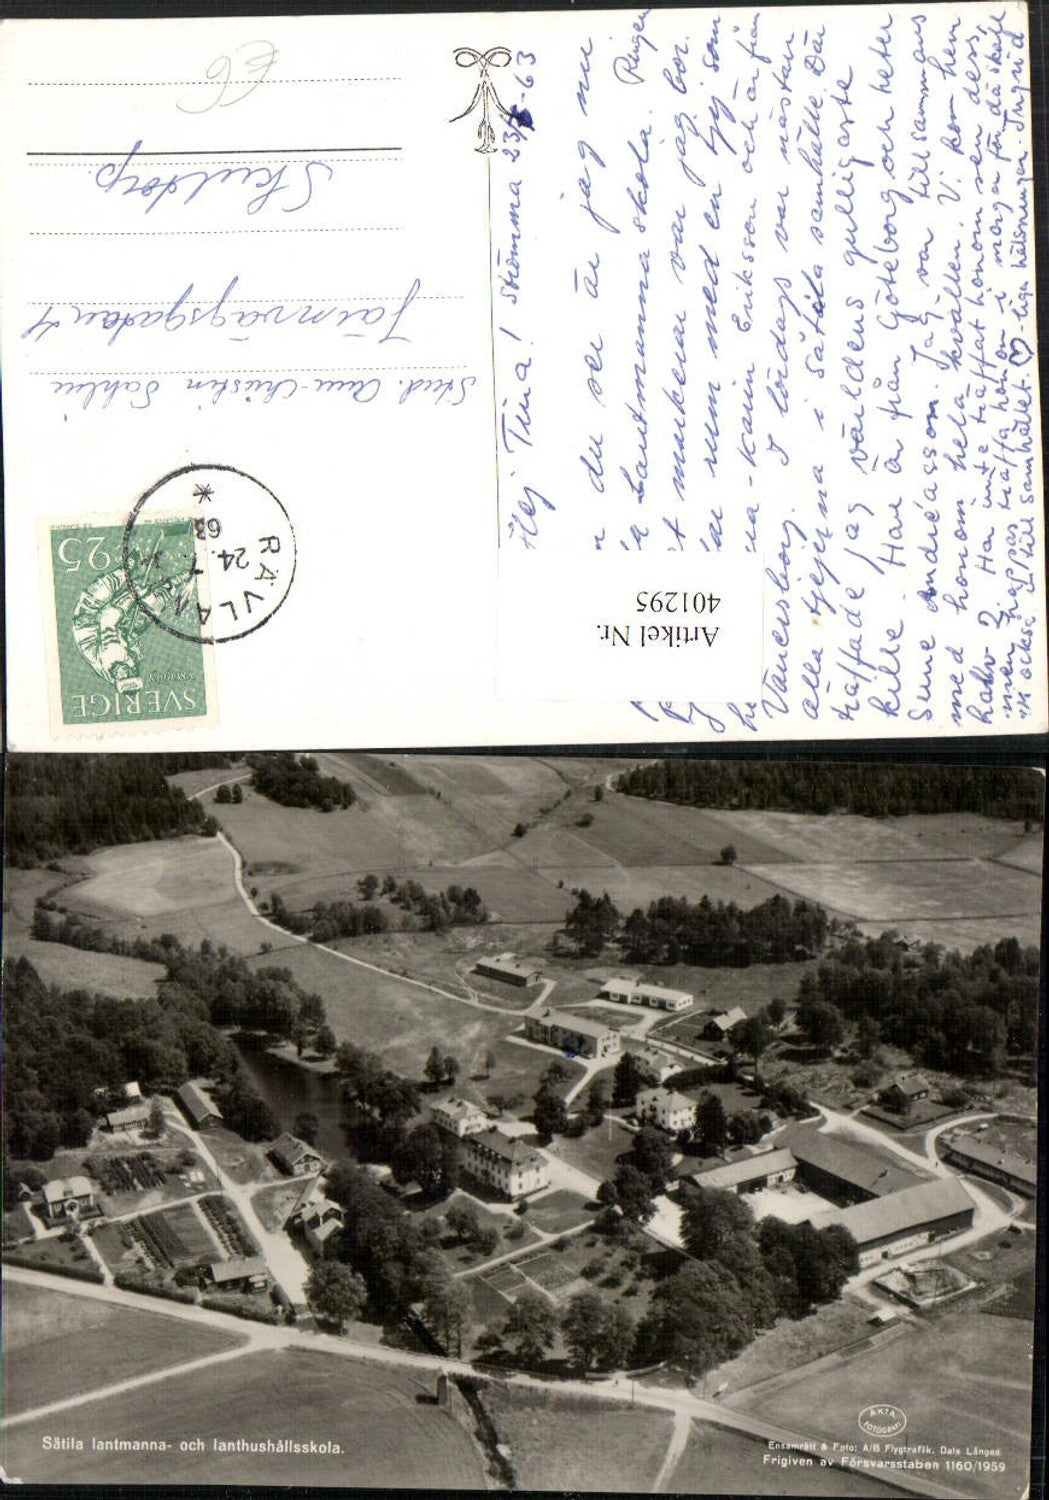 Hej Tina! Strömma 23/7-63
du ser är jag nu
Lantmannaskola. Ringen
t markerar var jag bor.
rum med en tjej som
he -Karin Eriksson och är från
Vänersborg. I lördags var nästan
alla tjejerna i Sätila samhälle. Där
träffade jag världens gulligaste
kille. Han är från Göteborg och heter
Sune Andréasson. Jag var tillsammans
med honom hela kvällen. Vi kom hem
halv 2. Har inte träffat honom sen dess,
men hoppas träffa honom i morgon för då skall
vi också till samhället. ♡-liga hälsningar. Ingrid
Stud. Ann-Christin Sahlin
Järnvägsgatan 4
Skultorp
€6
RÄVLANDA
24.7.
63
SVERIGE
25
Artikel Nr.
401295
Sätila lantmanna- och lanthushållsskola.
ÄKTA
FOTOGRAFI
Ensamrätt & Foto: A/B Flygtrafik, Dals Långed
Frigiven av Försvarsstaben 1160/1959